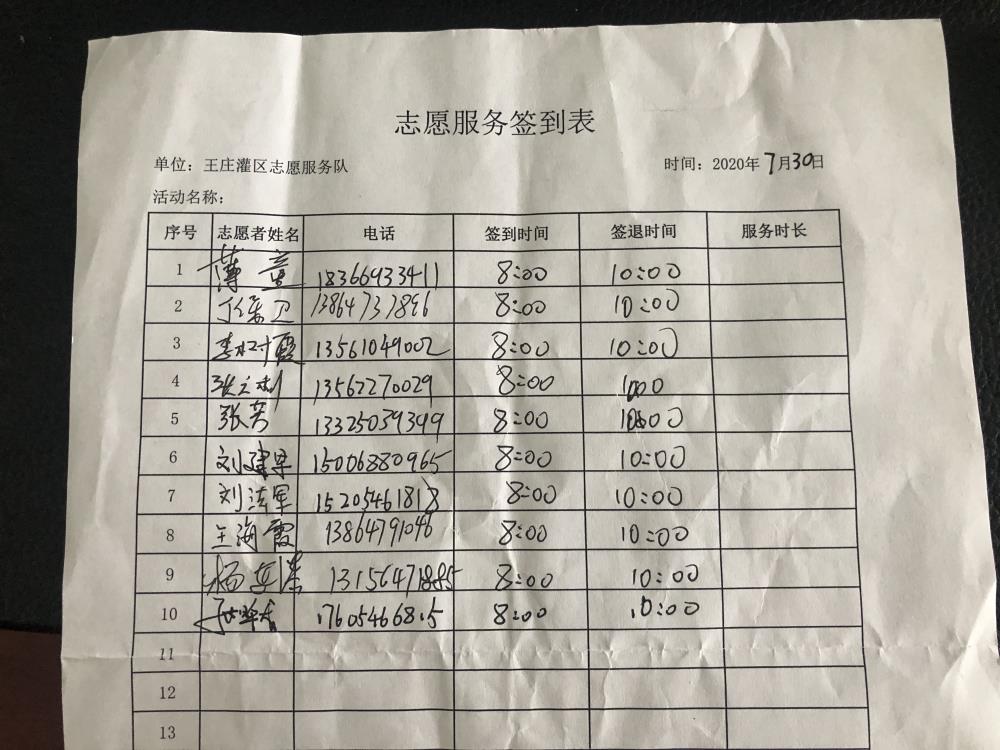 志愿服务签到表
单位：王庄灌区志愿服务队 时间：2020年7月30日
活动名称：
序号 志愿者姓名 电话 签到时间 签退时间 服务时长
1 薄童 18366933411 8:00 10:00
2 卫 13864731896 8:00 10:00
3 李树霞 13561049002 8:00 10:00
4 张立刚 13562270029 8:00
5 张芳 13325039399 8:00
6 刘建军 15006880965 8:00 10:00
7 刘法军 15205461818 8:00 10:00
8 王海霞 13864791046 8:00 10:00
9 杨 8:00 10:00
10 8:00 10:00
11
12
13